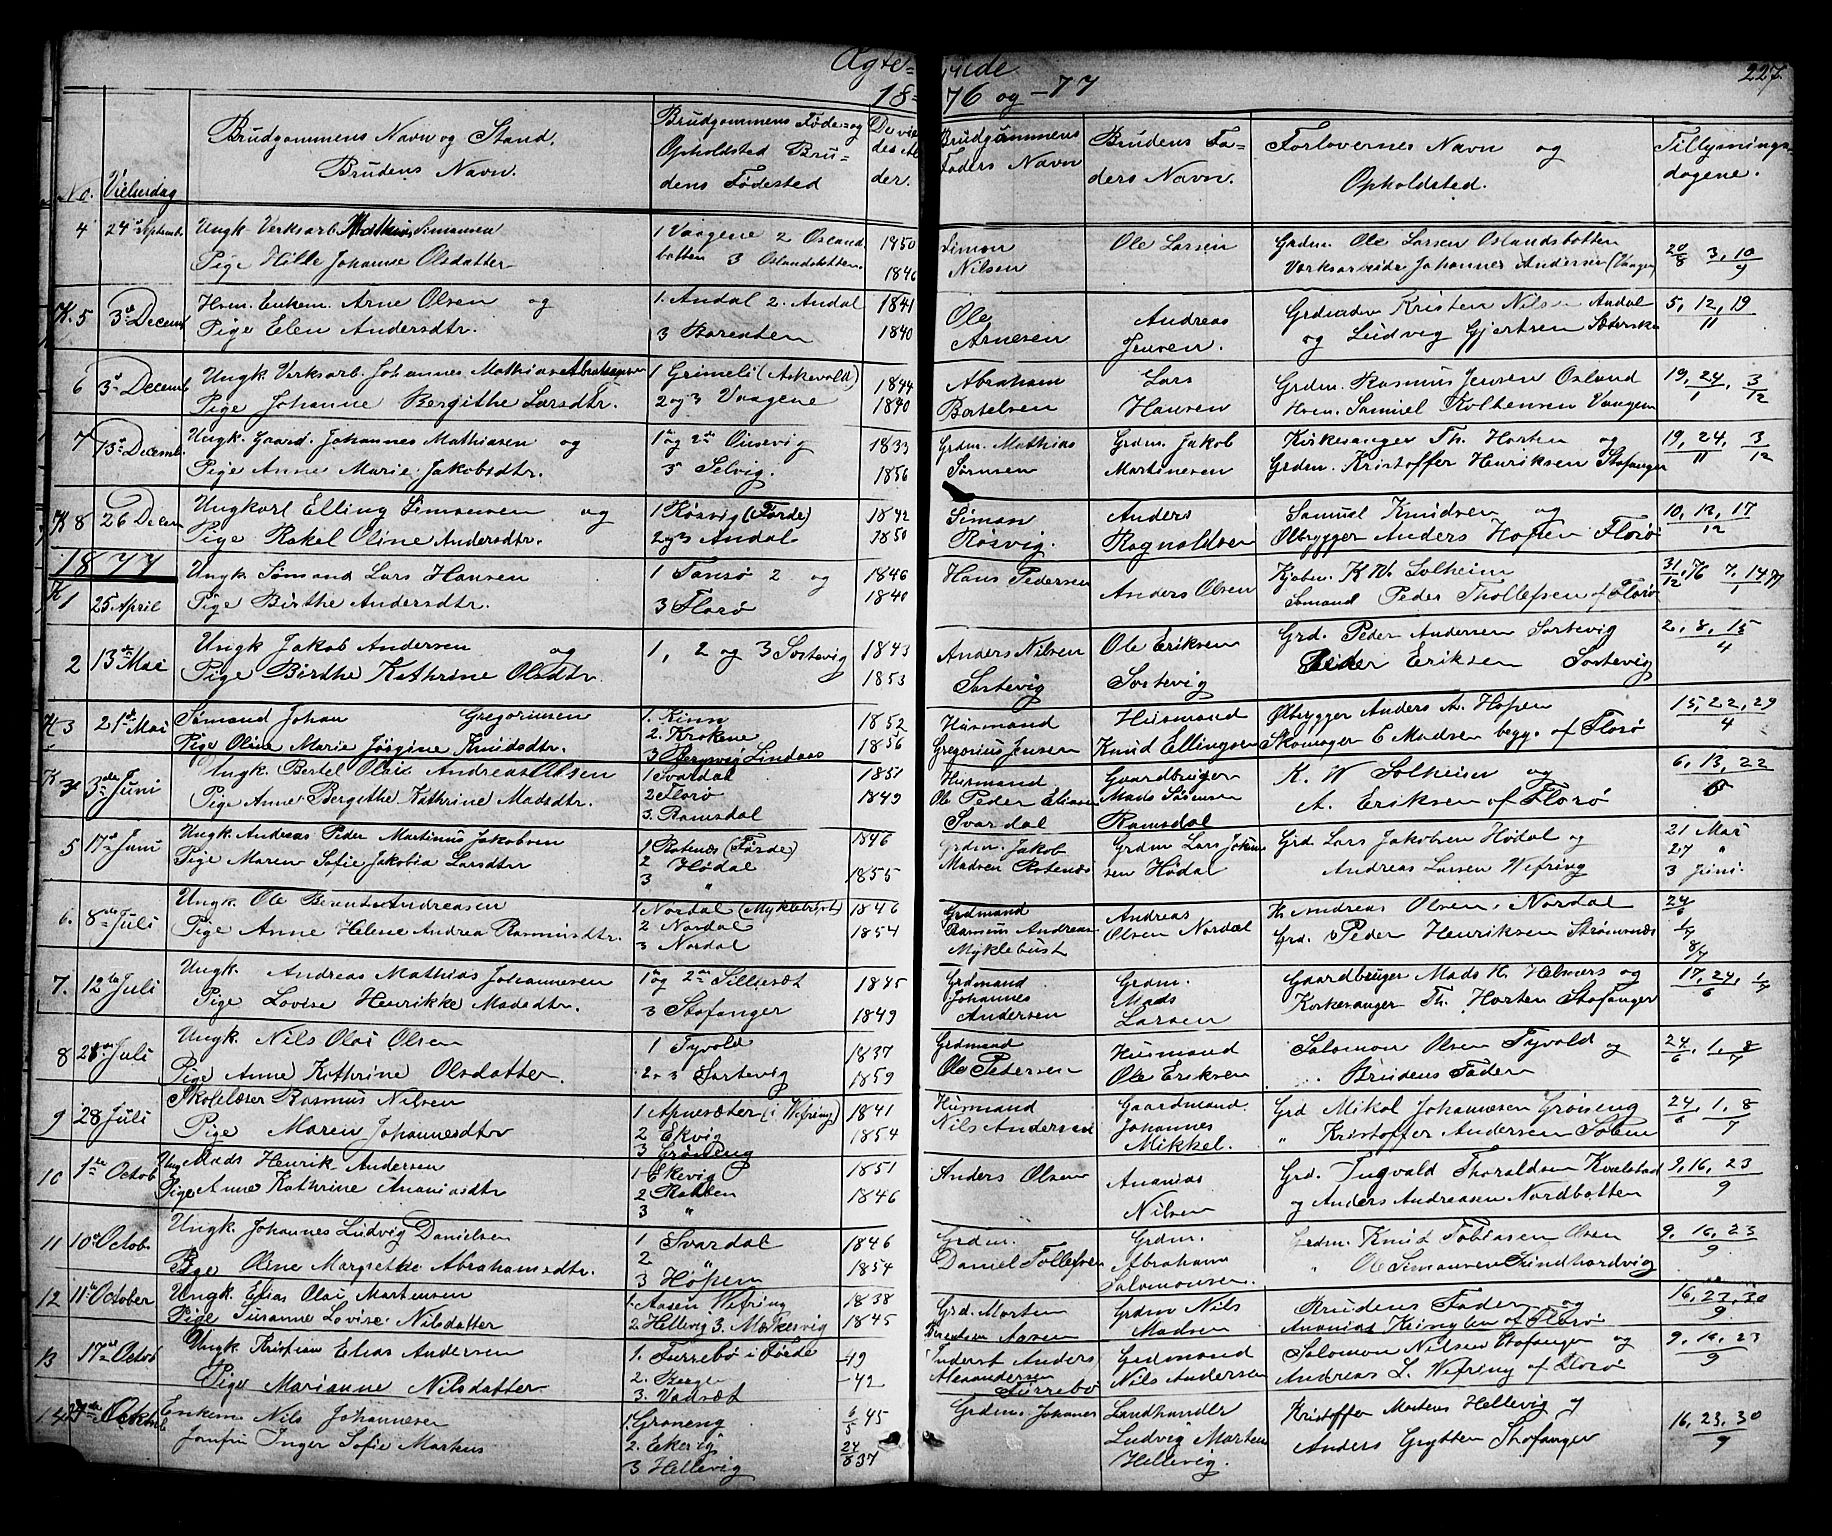 Ægte- viede
18- 76 og -77
227.
No. Vielsesdag
Brudgommens Navn og Stand.
Brudens Navn.
Brudgommens Føde- og
Opholdsted Bru-
dens Fødested
De vie
des Al
der.
Brudgommens
Faders Navn
Brudens Fa-
ders Navn.
Forlovernes Navn og
Opholdsted.
Tillysnings-
dagene.
4 24de Septemb. Ungk. Verksarb. Mathias Simonsen
Pige Hille Johanne Olsdatter
1 Vaagene 2 Osland
botten 3 Oslandsbotten.
1850
1846
Simon
Nilsen
Ole Larsen
Grdm. Ole Larsen Oslandsbotten
Verksarbeider Johannes Andersen (Vaagen)
20/8 3, 10/9
K. 5 3de Decemb Hvm. Enkem. Arne Olsen og
Pige Elen Andersdtr.
1. Andal 2. Andal
3 Barenten
1841
1840
Ole
Arnesen
Andreas
Jensen.
Grdmænd Kristen Nilsen Andal
og Ludvig Gjertsen
5, 12, 19
11
6 3de Decemb Ungk. Verksarb. Johannes Mathias Abrahamsen
Pige Johanne Bergithe Larsdtr.
1 Grimeli (Askevold)
2 og 3 Vaagene
1844
1840
Abraham
Bertelsen
Lars
Hansen
Grdm. Rasmus Jensen Osland
Hvm. Samuel Kolbensen Vaagene
19, 24, 3/12
1
7 13de Decemb. Ungk. Gaard. Johannes Mathiasen og
Pige Anne Marie Jakobsdtr.
1ste og 2de Ousevig
3 Selvig.
1833
1856
Grdm. Mathias
Sørensen
Grdm. Jakob
Martinesen
Kirkesanger Th. Horten og
Grdm. Kristoffer Henriksen Stafanger
19, 24, 3/12
11
K 8 26 Decem Ungkarl Elling Simonsen og
Pige Rakel Oline Andersdtr.
1 Røsvig (Førde)
2 og 3 Andal
1842
1850
Simon
Røsvig.
Anders
Ragnaldsen
Samuel Knudsen og
Ølbrygger Anders Hopen Florø
10, 12, 17
12
1877
K 1 25 April Ungk. Sømand Lars Hansen
Pige Birthe Andersdtr.
1 Tansø 2 og
3 Florø
1846
1840
Hans Pedersen
Anders Olsen
Kjøbm. K W. Solheim
Sømand Peder Thollefsen of Florø
31/12 76 7, 14 77
1
2 13de Mai Ungk Jakob Andersen og
Pige Birthe Kathrine Olsdtr.
1, 2 og 3 Sortevig
1843
1853
Anders Nilsen
Sortevig
Ole Eriksen
Sortevig
Grd. Peder Andersen Sortevig
Peder Eriksen Sortevig
2, 8, 15
4
K 3 21de Mai Sømand Johan Gregoriusen
Pige Oline Marie Jørgine Knudsdtr.
1. Kinn
2. Krokene
3 Bergsvig Lindaas
1852
1856
Husmand
Gregorius Jensen
Husmand
Knud Ellingsen
Ølbrygger Anders A. Hopen
Skomager E Madsen begg. of Florø
15, 22, 29
4
K 4 3de Juni Ungk. Bertel Olai Andreas Olsen
Pige Anne Bergethe Kathrine Madsdtr.
1 Svardal
2 Florø
3. Ramsdal
1851
1849
Husmand
Ole Peder Eliasen
Svardal
Gaardbruger
Mads Sørensen
Ramsdal
K. W Solheim og
A. Eriksen of Florø
6, 13, 22
5 17de Juni Ungk. Andreas Peder Martinus Jakobsen
Pige Maren Sofie Jakobia Larsdtr
1 Rotenæs (Førde)
2 Hødal
3 "
1846
1855
Grdm. Jakob
Madsen Rotenæs
Grdm Lars Joken
sen Hødal
Grd Lars Jakobsen Hødal og
Andreas Larsen Wefring
21 Mai
27 "
3 Juni.
6. 8de Juli Ungk. Ole Berent Andreasen
Pige Anne Helene Andrea Rasmusdtr.
1 Nordal (Myklebust)
2 Nordal
3 Nordal
1846
1854
Grdmand
Rasmus Andreas
Myklebust
Andreas
Olsen Nordal
Andreas Olsen. Nordal
Grd. Peder Henriksen Strømsnæs
24/6
1/7
8/7
7. 12te Juli Ungk. Andreas Mathias Johannesen
Pige Lovise Henrikke Madsdtr.
1ste og 2de Sillesæt
3 Stafanger
1845
1849
Grdmand
Johannes
Andersen
Grdm.
Mads
Larsen
Gaardbruger Mads H. Helmers og
Kirkesanger Th. Horten Stafanger
17, 24, 1/7
6
8 28de Juli Ungk. Nils Olai Olsen
Pige Anne Kathrine Olsdatter.
1 Tyvold
2 o 3 Sortevig
1837
1859
Grdmand
Ole Pedersen
Husmand
Ole Eriksen
Salomon Olsen Tyvold og
Brudens Fader
24/6, 1, 8
7
9 28 Juli Skolelærer Rasmus Nilsen
Pige Maren Johannesdtr
1 Arnesæter (i Wefring)
2 Ekvig
3 Grøneng
1841
1854
Husmand
Nils Andersen
Gaardmand.
Johannes
Mikkel.
Grd Mikal Johannesen Grøneng
" Kristoffer Andersen Solem
24/6, 1, 8
7
10 1ste Octob Ung Mads Henrik Andersen
Pige Anne Kathrine Ananiasdtr
1 Ekevig
2 Rabben
3 "
1851
1846
Anders Olsen
Ananias
Nilsen
Grd. Ingvald Thoraldsen Kvalstad
og Anders Andreasen Nordbotten
9, 16, 23
9
11 10de Octob. Ungk. Johannes Ludvig Danielsen
Pige Oline Margrethe Abrahamsdtr.
1 Svardal
2 "
3 Hopen
1846
1854
Grdm.
Daniel Tollefsen
Grdm.
Abraham
Salomonsen.
Grdm. Knud Tobiasen Osen
" Ole Simonsen Lindhardvig
9, 16, 23
9
12 11te October Ungk. Elias Olai Martensen
Pige Susanne Lovise Nilsdatter
1. Aasen Wefring
2 Hellvig 3. Markesvig
1838
1845
Grd. Morten
Berentsen Aasen
Grdm Nils
Madsen
Brudens Fader og
Ananias Kringlen of Florø
16, 23, 30
9
13 17de Octob Ungk. Kristian Elias Andersen
Pige Marianne Nilsdatter
1. Furrebø i Førde
2.
3. Vadsæt
-49
-42
Inderst Anders
Alexandersen
Furrebø
Grdmand
Nils Andersen
Salomon Nilsen Stafanger og
Andreas L. Wefring of Florø
9, 16, 23
9
14 Octob Enkem Nils Johannesen
Jomfru Inger Sofie Markus
1. Grøneng
2. Ekevig
3 Hellevig
6/5 45
24/8 37
Grdm. Johanes
Landhandler
Ludvig Morten
Hellevig.
Kristoffer Mortens Hellevig og
Anders Grytten Stafanger
16, 23, 30
9